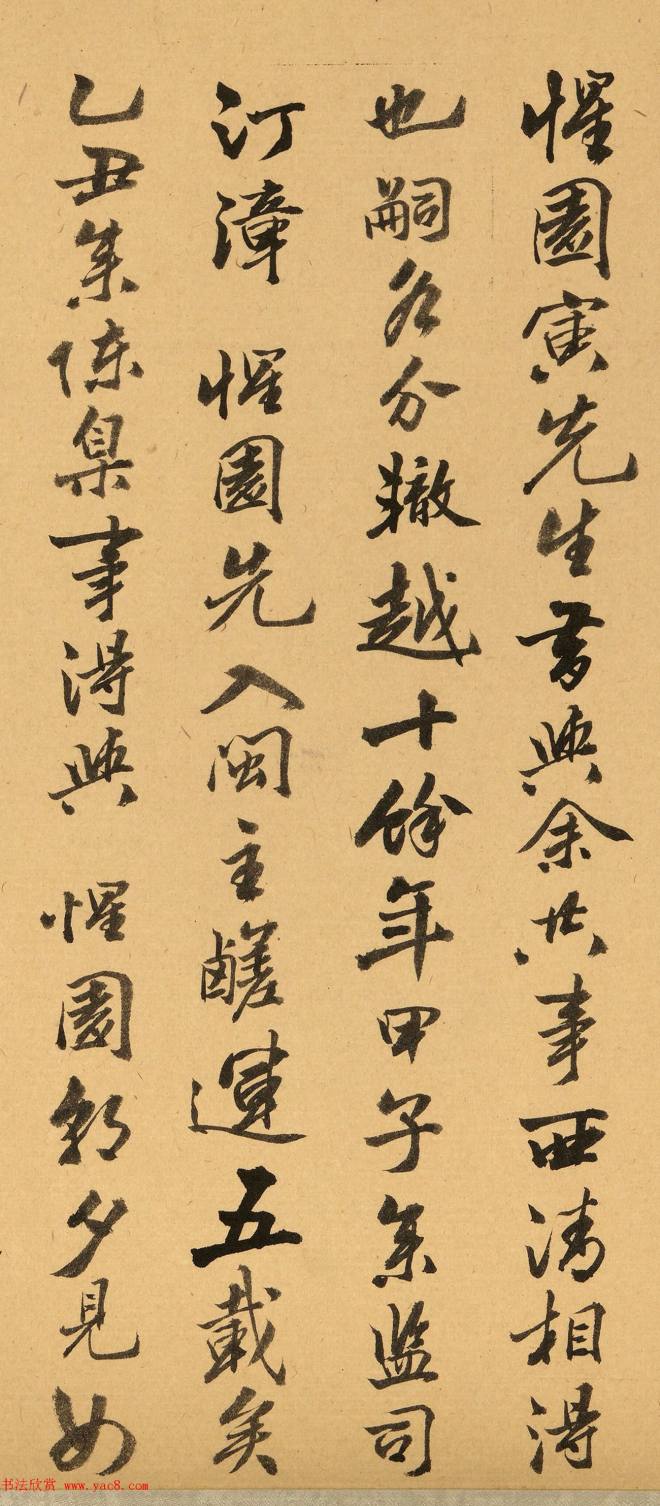 惺園寅先生曩與余共事西清相得
也嗣各分轍越十餘年甲子余監司
汀漳 惺園先入閩主鹺運五載矣
乙丑余陳臬事得與 惺園朝夕見如
书法欣赏 www.yac8.com